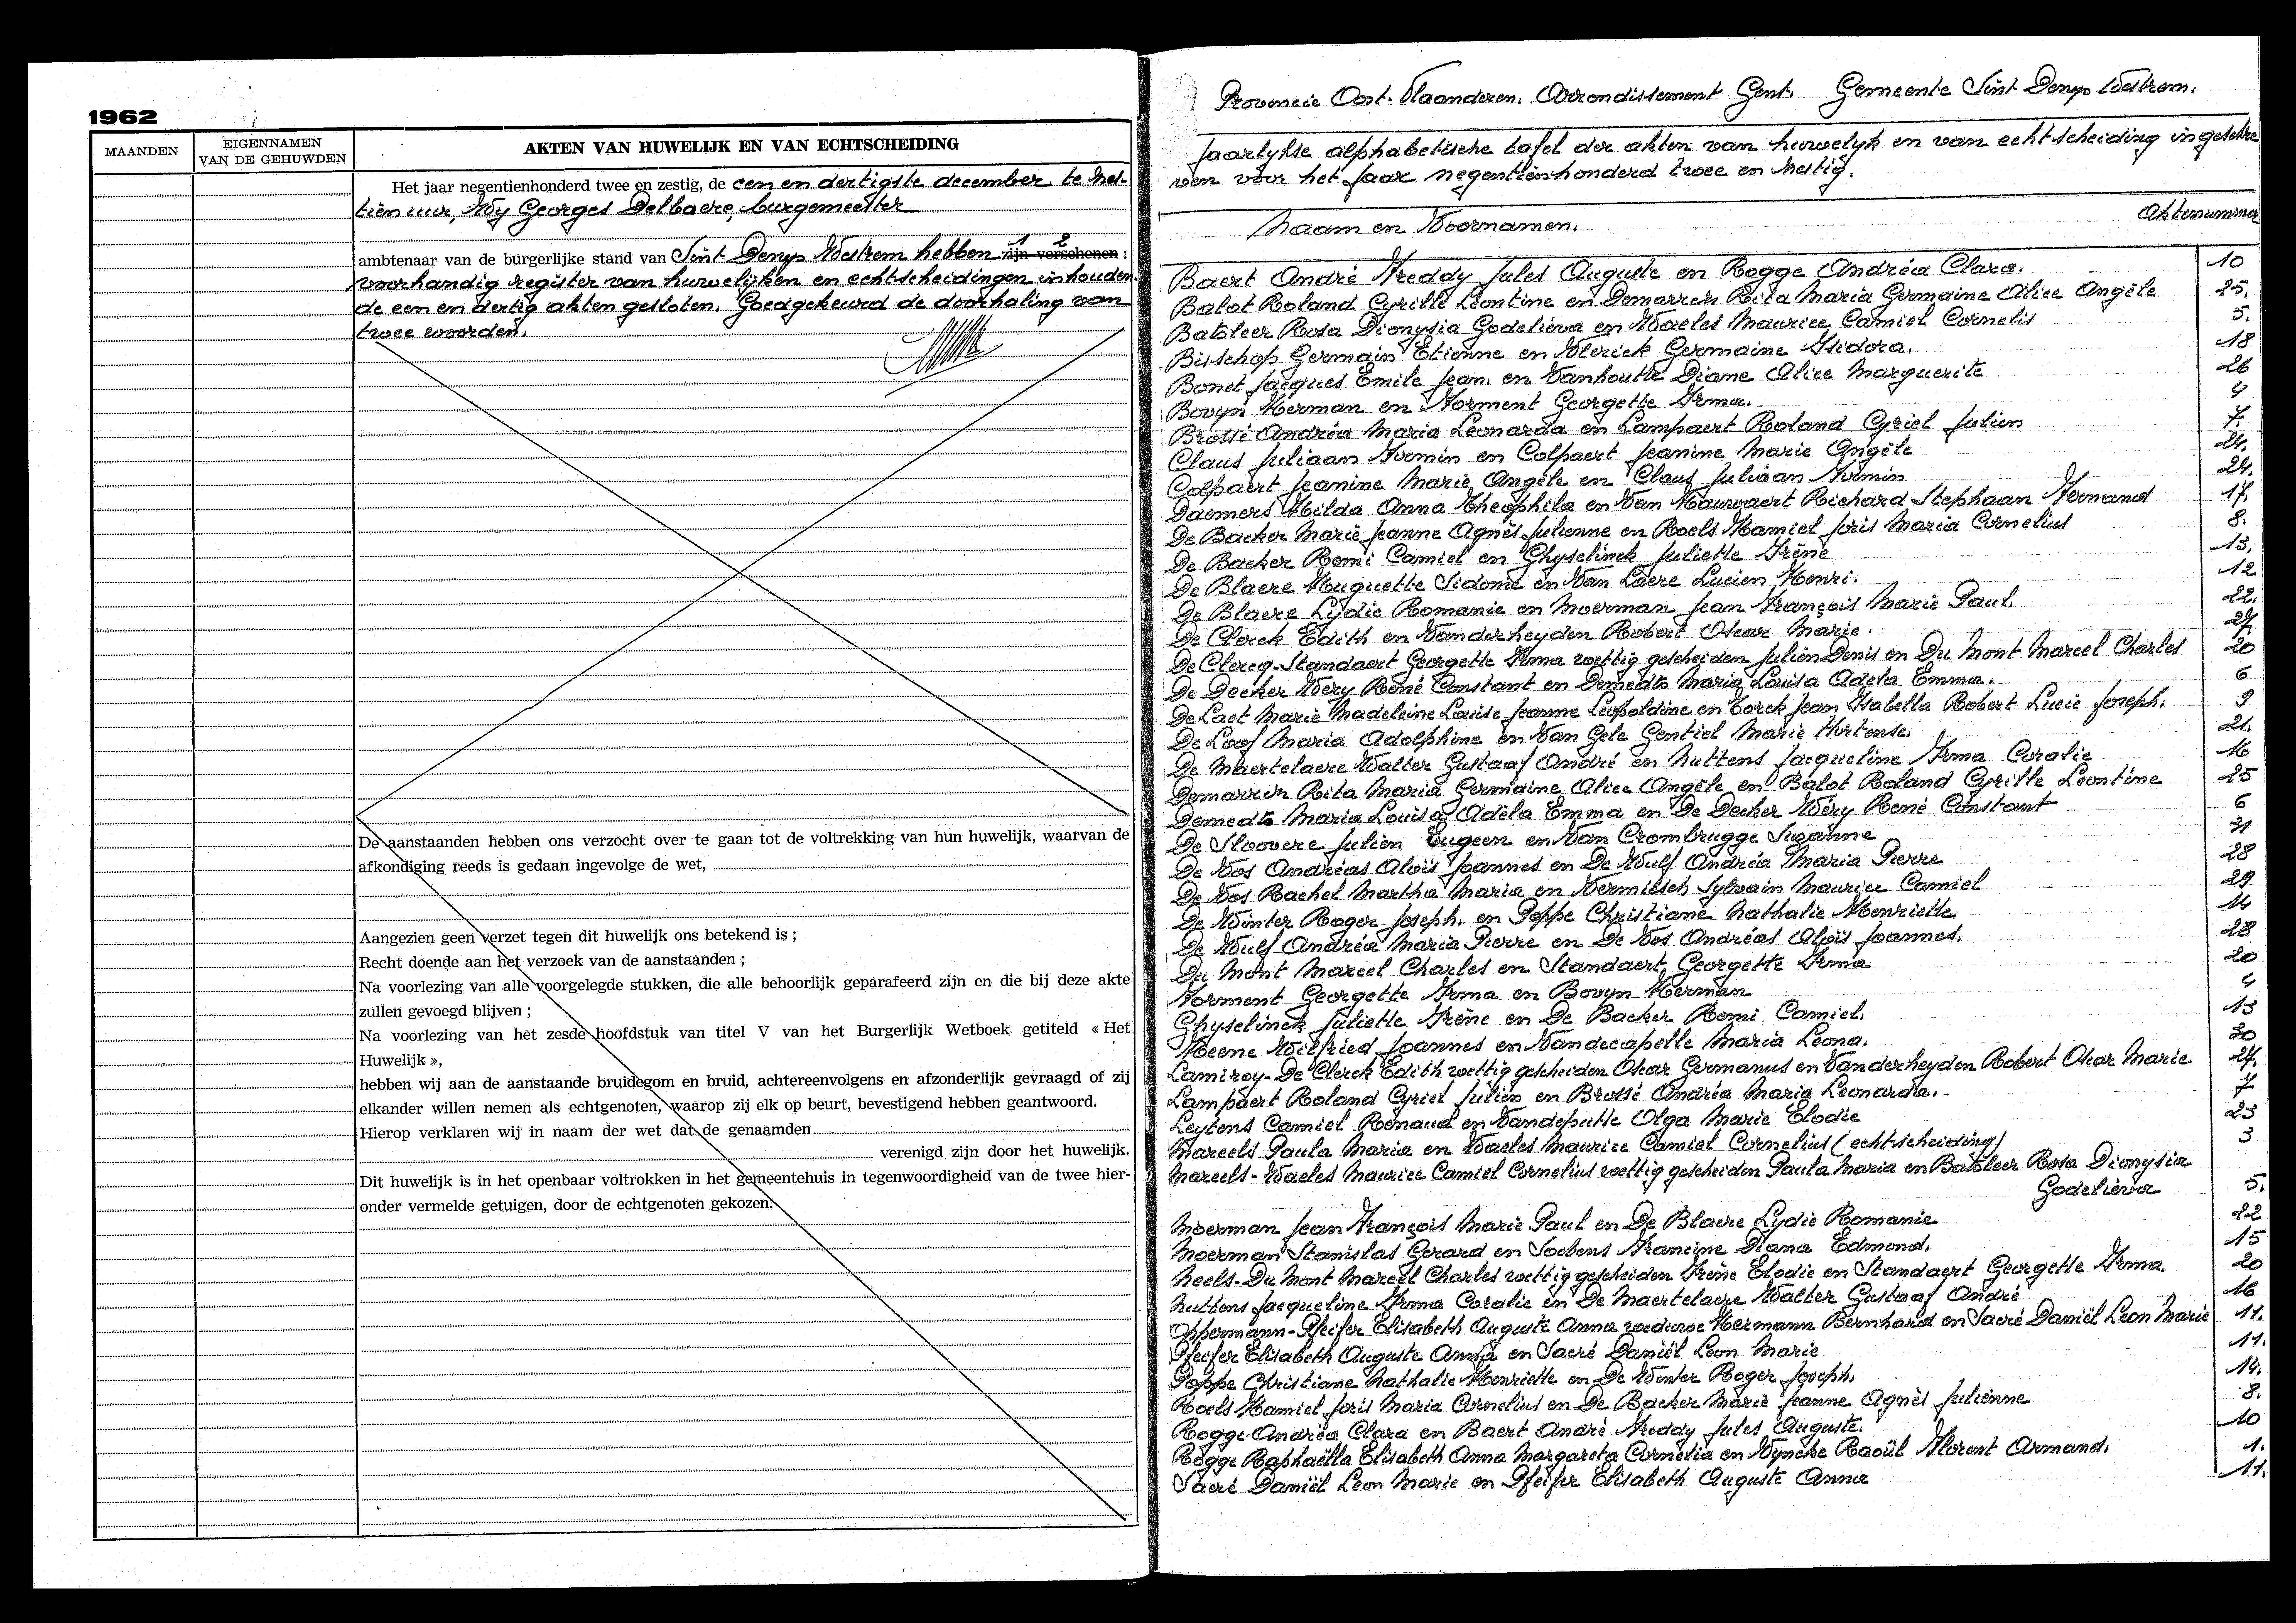 1962
MAANDEN
EIGENNAMEN
VAN DE GEHUWDEN
AKTEN VAN HUWELIJK EN VAN ECHTSCHEIDING
Het jaar negentienhonderd twee en zestig, de een en dertigste december te zes-
tien uur, Wy Georges Delbaere, burgemeester
ambtenaar van de burgerlijke stand van Sint Denys Westrem hebben 1 2 zijn verschenen :
voorhandig register van huwelijken en echtscheidingen inhouden-
de een en dertig akten gesloten. Goedgekeurd de doorhaling van
twee woorden.
De aanstaanden hebben ons verzocht over te gaan tot de voltrekking van hun huwelijk, waarvan de
afkondiging reeds is gedaan ingevolge de wet,
Aangezien geen verzet tegen dit huwelijk ons betekend is ;
Recht doende aan het verzoek van de aanstaanden ;
Na voorlezing van alle voorgelegde stukken, die alle behoorlijk geparafeerd zijn en die bij deze akte
zullen gevoegd blijven ;
Na voorlezing van het zesde hoofdstuk van titel V van het Burgerlijk Wetboek getiteld « Het
Huwelijk »,
hebben wij aan de aanstaande bruidegom en bruid, achtereenvolgens en afzonderlijk gevraagd of zij
elkander willen nemen als echtgenoten, waarop zij elk op beurt, bevestigend hebben geantwoord.
Hierop verklaren wij in naam der wet dat de genaamden
verenigd zijn door het huwelijk.
Dit huwelijk is in het openbaar voltrokken in het gemeentehuis in tegenwoordigheid van de twee hier-
onder vermelde getuigen, door de echtgenoten gekozen.
Provincie Oost-Vlaanderen. Arrondissement Gent. Gemeente Sint Denys Westrem.
Jaarlykse alphabetische tafel der akten van huwelyk en van echtscheiding ingeschre
ven voor het jaar negentienhonderd twee en zestig.
Naam en Voornamen. Aktenummer
Baert André Freddy Jules Auguste en Rogge Andréa Clara. 10
Balot Roland Cyrille Léontine en Demarrez Rita Maria Germaine Alice Angèle 25.
Batsleer Rosa Dionysia Godelieva en Waeles Maurice Camiel Cornelis 5.
Bisschop Germain Etienne en Vlerick Germaine Isidora. 18
Bonet Jacques Emile Jean. en Vanhoutte Diane Alice Marguerite 26
Bovyn Herman en Forment Georgette Irma. 4
Brossé Andréa Maria Leonarda en Lampaert Roland Cyriel Julien 7.
Claus Juliaan Firmin en Colpaert Jeanine Marie Angèle 24.
Colpaert Jeanine Marie Angèle en Claus Juliaan Firmin 24.
Daemers Hilda Anna Theophila en Van Hauwaert Richard Stephaan Fernand 17.
De Backer Marie Jeanne Agnès Julienne en Roels Kamiel Joris Maria Cornelius 8.
De Backer Remi Camiel en Ghyselinck Juliette Irène 13.
De Blaere Huguette Sidonie en Van Laere Lucien Henri. 12
De Blaere Lydie Romanie en Moerman Jean François Marie Paul. 22.
De Clerck Edith en Vanderheyden Robert Oscar Marie. 27.
De Clercq-Standaert Georgette Irma wettig gescheiden Julien Denis en Du Mont Marcel Charles 20
De Decker Wéry René Constant en Demedts Maria Louisa Adela Emma. 6
De Laet Marie Madeleine Louise Jeanne Léopoldine en Torck Jean Isabella Robert Lucie Joseph. 9
De Loof Maria Adolphine en Van Gele Gentiel Marie Hortense. 21.
De Maertelaere Walter Gustaaf André en Nuttens Jacqueline Irma Coralie 16
Demarrez Rita Maria Germaine Alice Angèle en Balot Roland Cyrille Léontine 25
Demedts Maria Louisa Adela Emma en De Decker Wéry René Constant 6
De Sloovere Julien Eugeen en Van Crombrugge Suzanne 31
De Vos Andréas Aloïs Joannes en De Wulf Andréa Maria Pierre 28
De Vos Rachel Martha Maria en Vermilsch Sylvain Maurice Camiel 29
De Winter Roger Joseph. en Poppe Christiane Nathalie Henriette 14
De Wulf Andréa Maria Pierre en De Vos Andréas Aloïs Joannes. 28
Du Mont Marcel Charles en Standaert Georgette Irma 20
Forment Georgette Irma en Bovyn Herman 4
Ghyselinck Juliette Irène en De Backer Remi Camiel. 13
Heene Wilfried Joannes en Vandecapelle Maria Leona. 30
Lamiroy-De Clerck Edith wettig gescheiden Oscar Germanus en Vanderheyden Robert Oscar Marie 27.
Lampaert Roland Cyriel Julien en Brossé Andréa Maria Leonarda. 7
Leytens Camiel Renaud en Vandeputte Olga Marie Elodie 23
Mareels Paula Maria en Waeles Maurice Camiel Cornelius (echtscheiding) 3
Mareels-Waeles Maurice Camiel Cornelius wettig gescheiden Paula Maria en Batsleer Rosa Dionysia
Godelieva 5.
Moerman Jean François Marie Paul en De Blaere Lydie Romanie 22
Moerman Stanislas Gerard en Soebens Francine Diana Edmond. 15
Neels-Du Mont Marcel Charles wettig gescheiden Irène Elodie en Standaert Georgette Irma. 20
Nuttens Jacqueline Irma Coralie en De Maertelaere Walter Gustaaf André 16
Oppermann-Pfeifer Elisabeth Auguste Anna weduwe Hermann Bernhard en Sacré Daniël Leon Marie 11.
Pfeifer Elisabeth Auguste Anna en Sacré Daniël Leon Marie 11.
Poppe Christiane Nathalie Henriette en De Winter Roger Joseph. 14.
Roels Kamiel Joris Maria Cornelius en De Backer Marie Jeanne Agnès Julienne 8.
Rogge Andréa Clara en Baert André Freddy Jules Auguste. 10
Rogge Raphaëlla Elisabeth Anna Margareta Cornelia en Wyncke Raoül Florent Armand. 1.
Sacré Daniël Leon Marie en Pfeifer Elisabeth Auguste Anna 11.